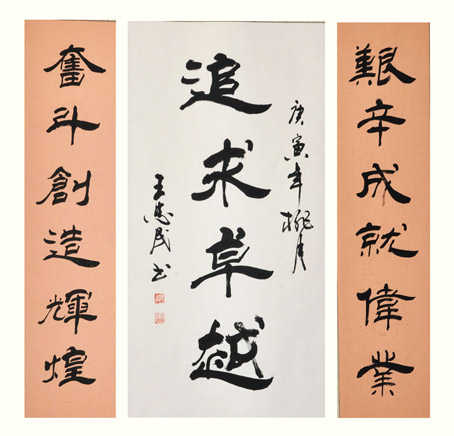 艱辛成就偉業
庚寅年桃月
追求卓越
王惠民书
奮斗創造輝煌